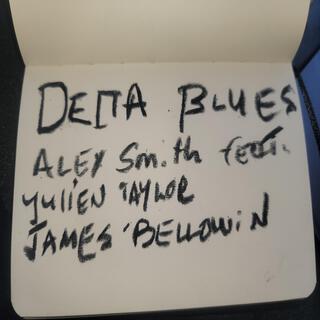 DELTA BLUES
ALEX Smith feat.
YUllEN TAYLOR
JAMES BELLOWiN